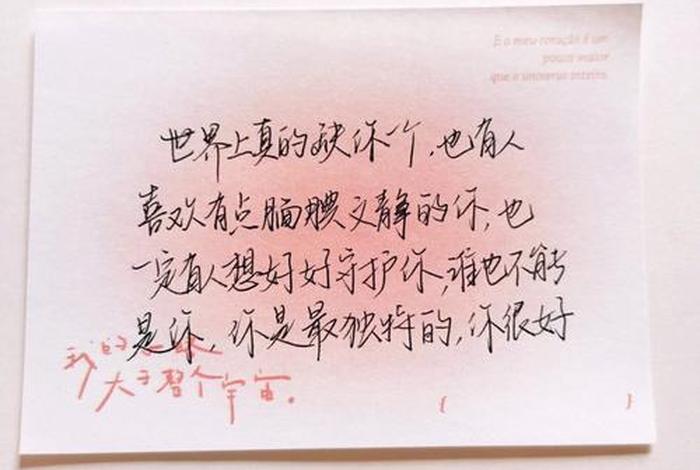 E o meu coração é um
pouco maior
que o universo inteiro.
世界上真的缺你一个,也有人
喜欢有点腼腆文静的你,也
一定有人想好好守护你,谁也不能
是你,你是最独特的,你很好
我的
大于整个宇宙。
{ }